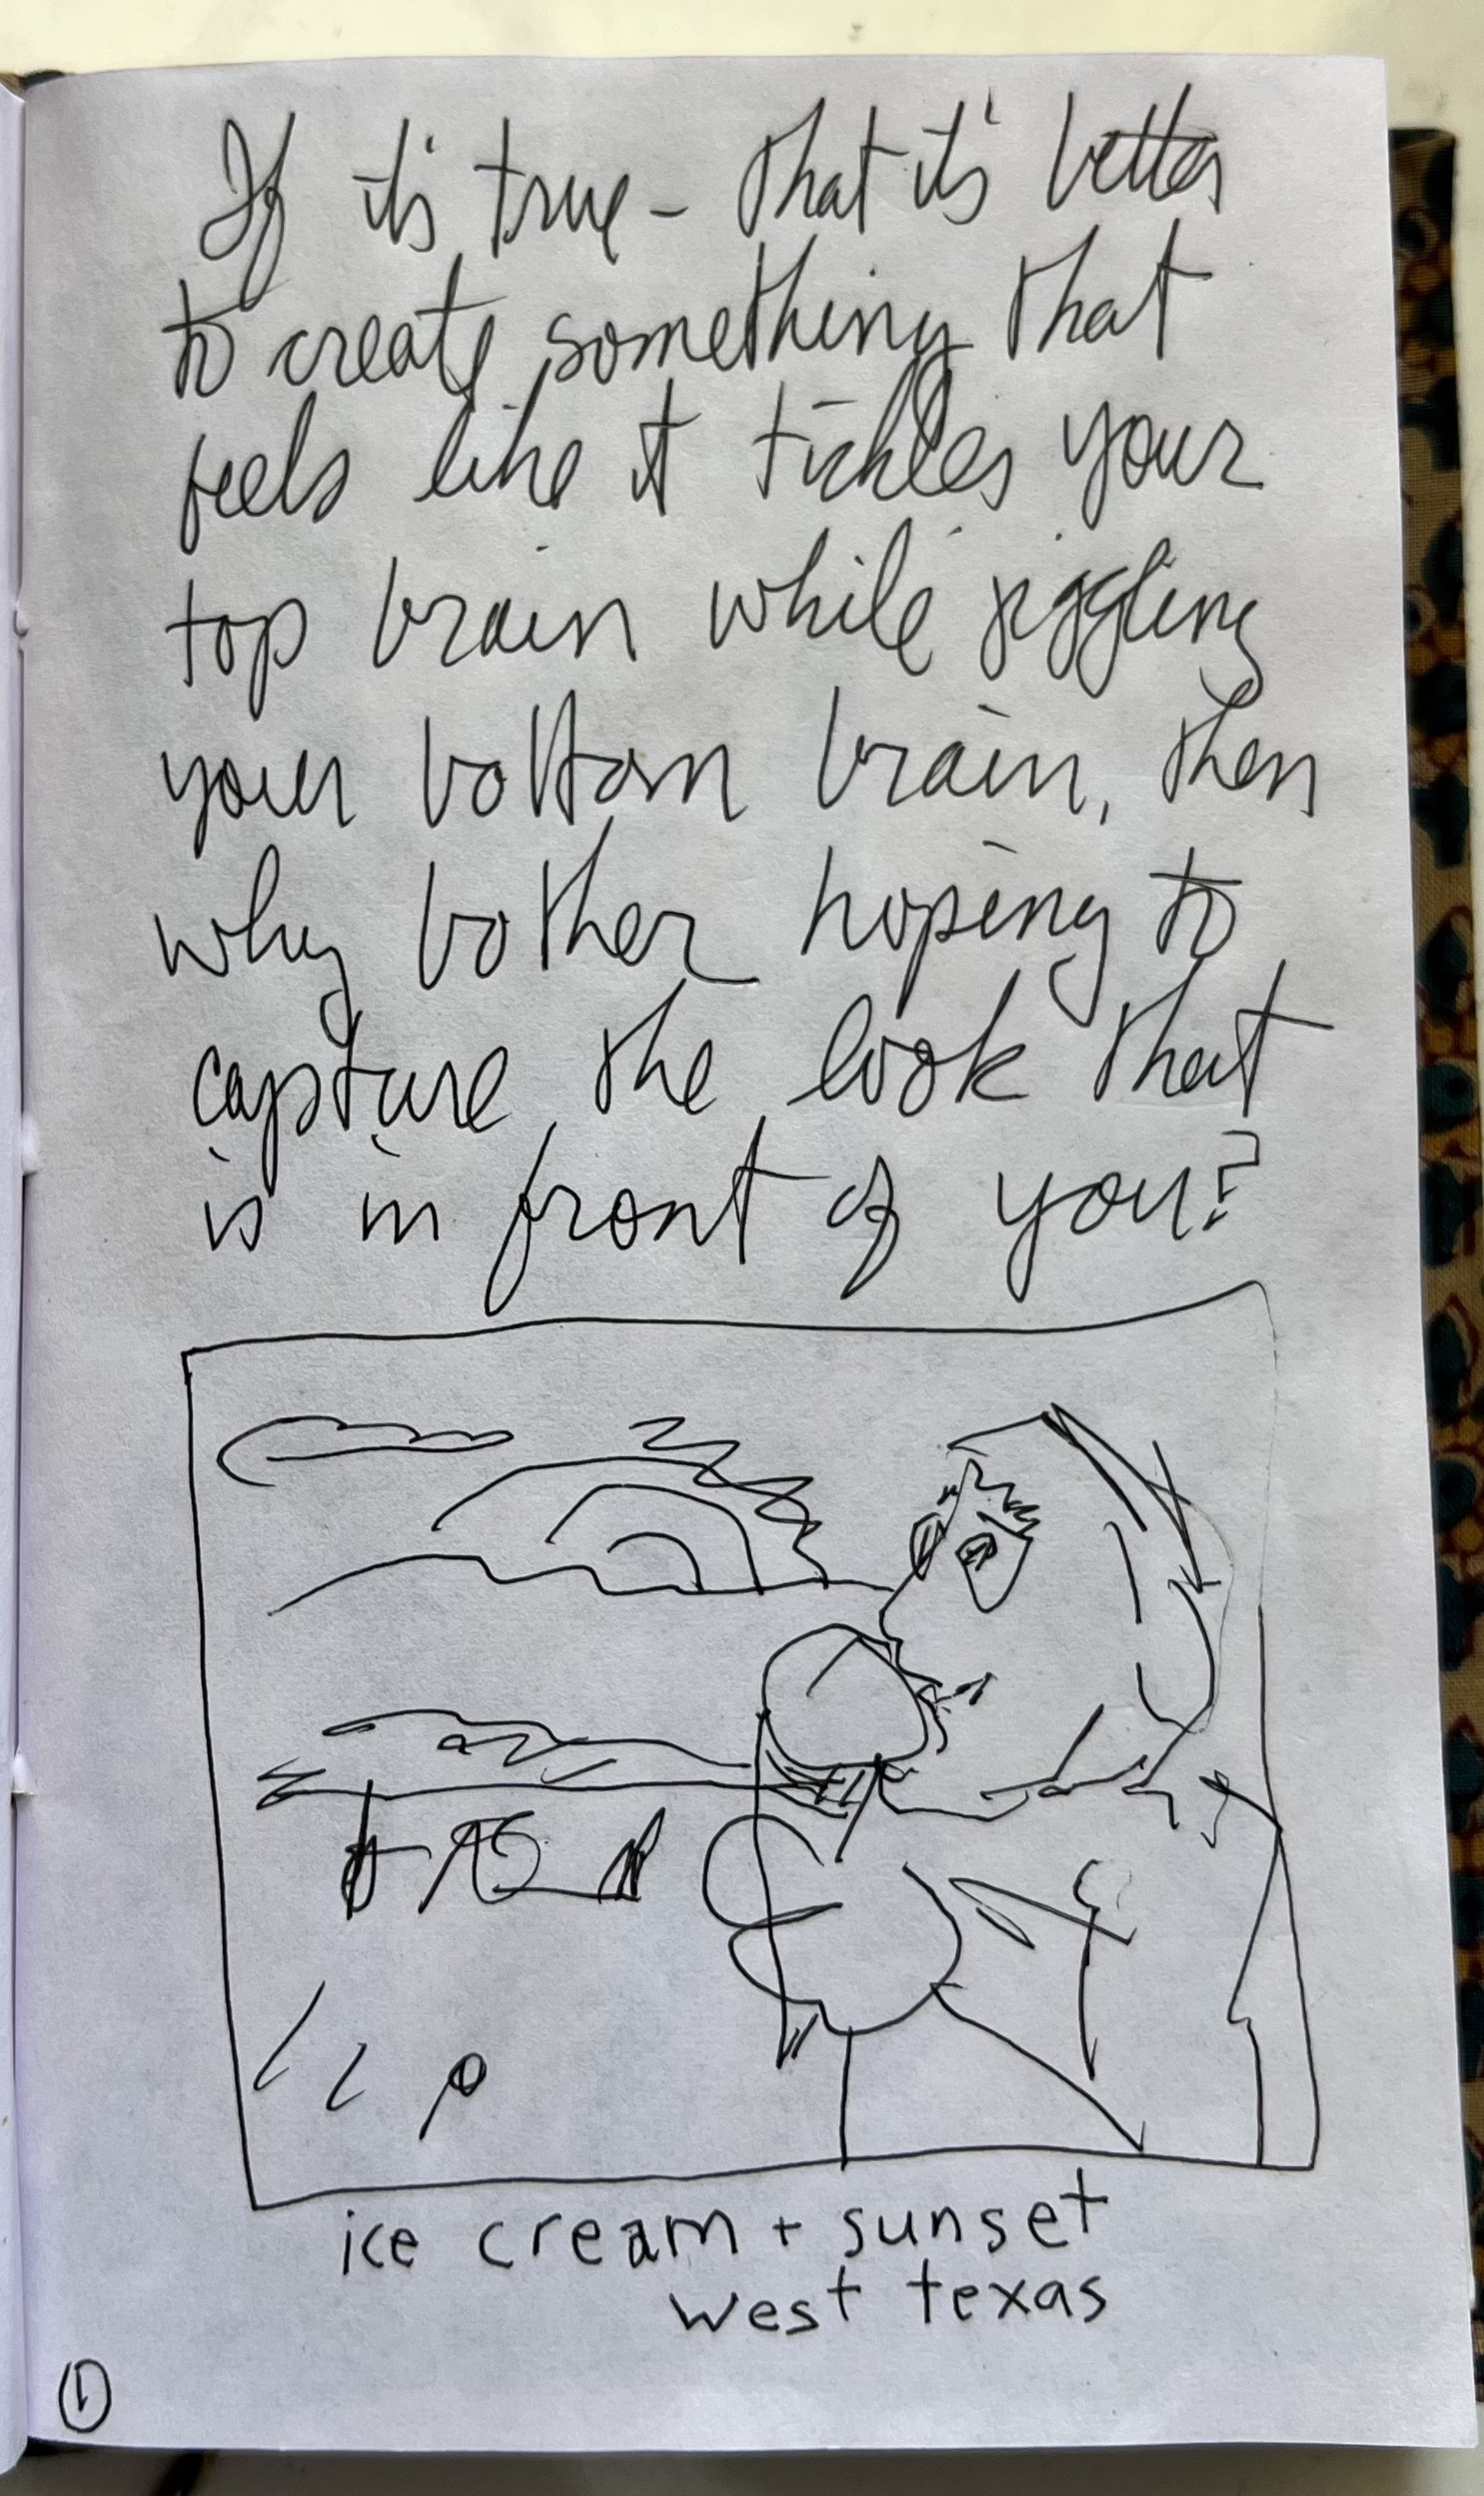 If it's true - that it's better
to create something that
feels like it tickles your
top brain while jiggling
your bottom brain, then
why bother hoping to
capture the look that
is in front of you?
ice cream + sunset
west texas
1